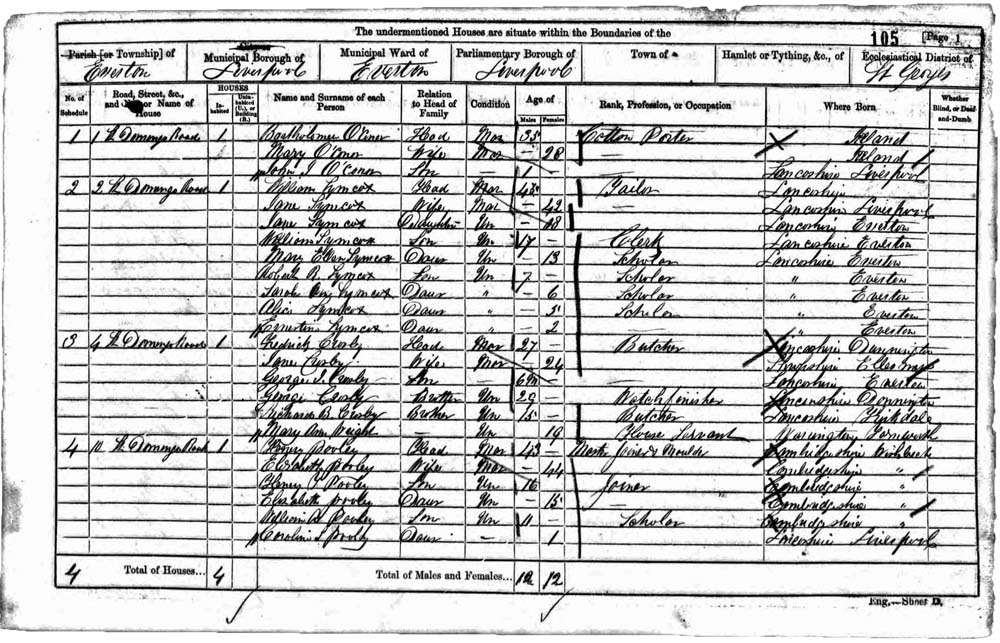 The undermentioned Houses are situate within the Boundaries of the
105 [Page 1
Parish [or Township] of Municipal Borough of Municipal Ward of Parliamentary Borough of Town of Hamlet or Tything, &c., of Ecclesiastical District of
Everton Liverpool Everton Liverpool St Georges
No. of Schedule Road, Street, &c., and No. or Name of House HOUSES Inhabited Uninhabited (U.), or Building (B.) Name and Surname of each Person Relation to Head of Family Condition Age of Males Females Rank, Profession, or Occupation Where Born Whether Blind, or Deaf-and-Dumb
1 1 St Domingo Road 1 Bartholomew O'Conor Head Mar 35 Cotton Porter Ireland
Mary O'Conor Wife Mar – 28 Ireland
John J O'Conor Son – 1 Lancashire Liverpool
2 3 St Domingo Road 1 William Lymcox Head Mar 45 Tailor Lancashire
Jane Lymcox Wife Mar – 42 – Lancashire Liverpool
Jane Lymcox Daughter Un – 18 – Lancashire Everton
William Lymcox Son Un 17 – Clerk Lancashire Everton
Mary Ellen Lymcox Daur Un – 13 Scholar Lancashire Everton
Robert R Lymcox Son Un 7 – Scholar " Everton
Sarah Lymcox Daur " – 6 Scholar " Everton
Alice Lymcox Daur " – 5 Scholar " Everton
Ernestine Lymcox Daur " – 2 " Everton
3 St Domingo Road 1 Fredrick Crosby Head Mar 27 – Butcher Lancashire
Jane Crosby Wife Mar – 24 Shropshire Ellesmere
George J Crosby Son 6m – Lancashire Everton
George Crosby Brother Un 29 – Watchfinisher Lancashire
Richard B Crosby Brother Un 15 – Butcher Lancashire Kirkdale
Mary Ann Wright – Un – 19 House Servant
4 St Domingo Road 1 Henry Pooley Head Mar 43 – Joiner & Cambridgeshire Wisbeach
Elizabeth Pooley Wife Mar – 44 Cambridgeshire "
Henry Pooley Son Un 16 – Joiner Cambridgeshire "
Elizabeth Pooley Daur Un – 15 – Cambridgeshire "
William Pooley Son Un 11 – Scholar Cambridgeshire "
Caroline Pooley Daur – 1 Lancashire Liverpool
4 Total of Houses... 4 Total of Males and Females... 12 12
Eng.—Sheet D.